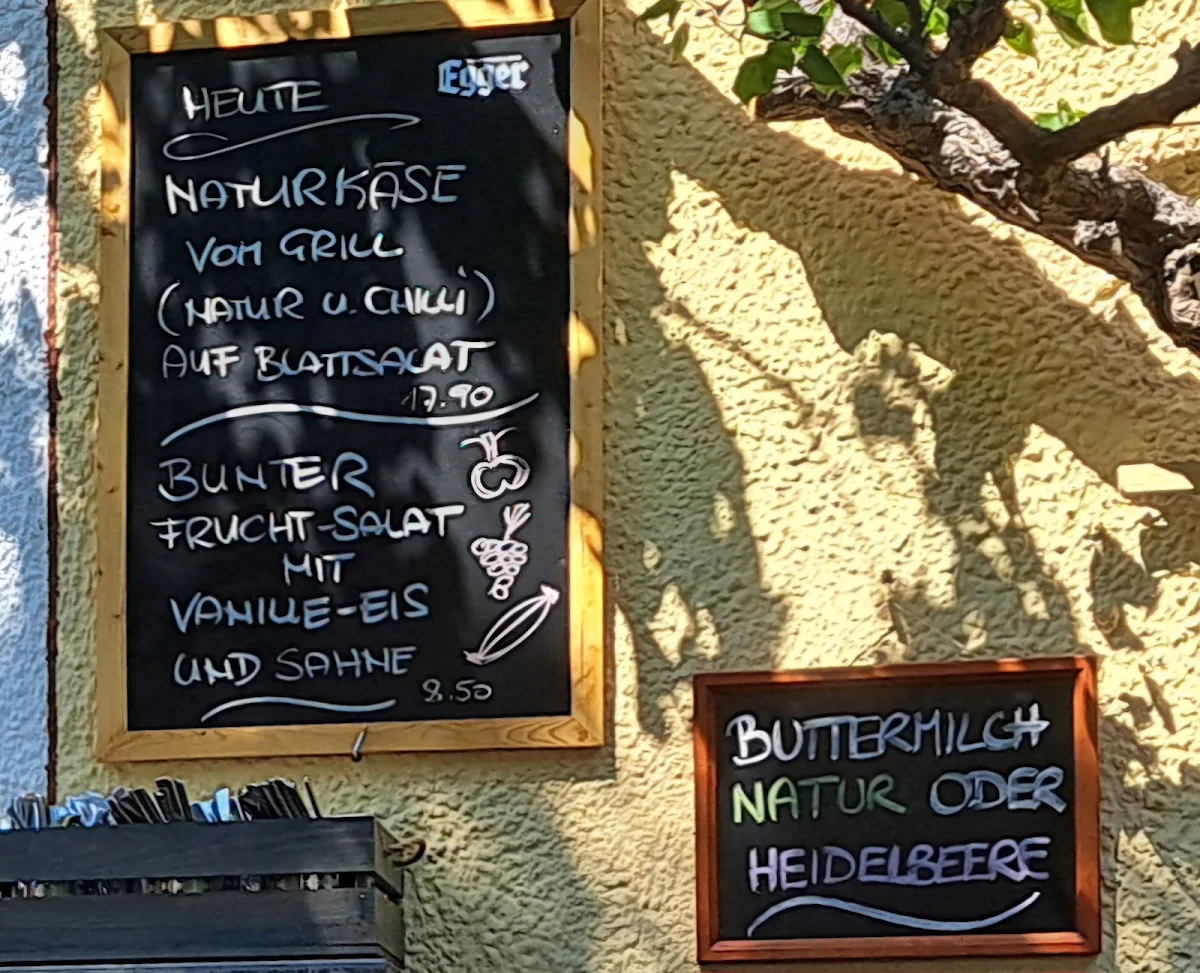 Egger
HEUTE
NATURKÄSE
VOM GRILL
(NATUR U. CHILLI)
AUF BLATTSALAT
17.90
BUNTER
FRUCHT-SALAT
MIT
VANILLE-EIS
UND SAHNE
8.50
BUTTERMILCH
NATUR ODER
HEIDELBEERE